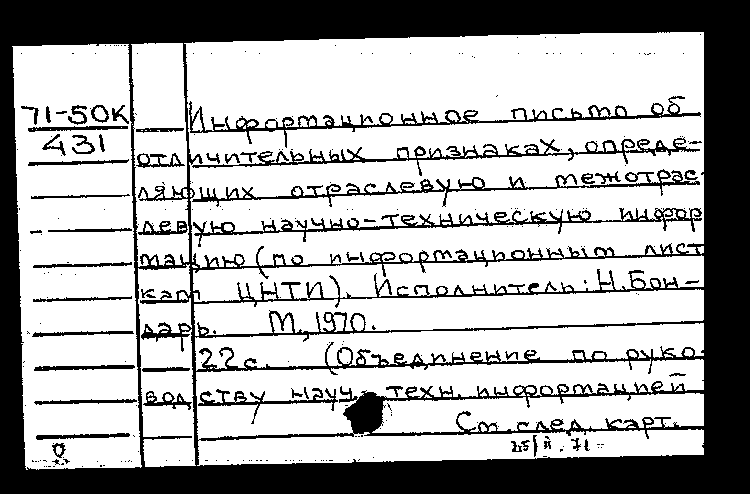 71-50К
431
Информационное письмо об
отличительных признаках, опреде-
ляющих отраслевую и межотрас-
левую научно-техническую инфор
мацию (по информационным лист
кам ЦНТИ). Исполнитель: Н. Бон-
дарь. М., 1970.
22 с. (Объединение по руко-
водству науч.-техн. информацией
См. след. карт.
25/II.71